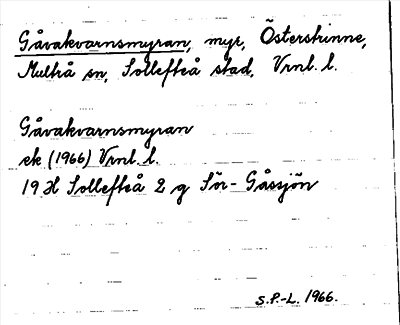 Gåvakvarnsmyran, myr, Österstrinne,
Multrå sn, Sollefteå stad, Vrnl. l.
Gåvakvarnsmyran
ek (1966) Vrnl. l.
19 H Sollefteå 2 g Sör-Gåssjön
S.P.-L. 1966.